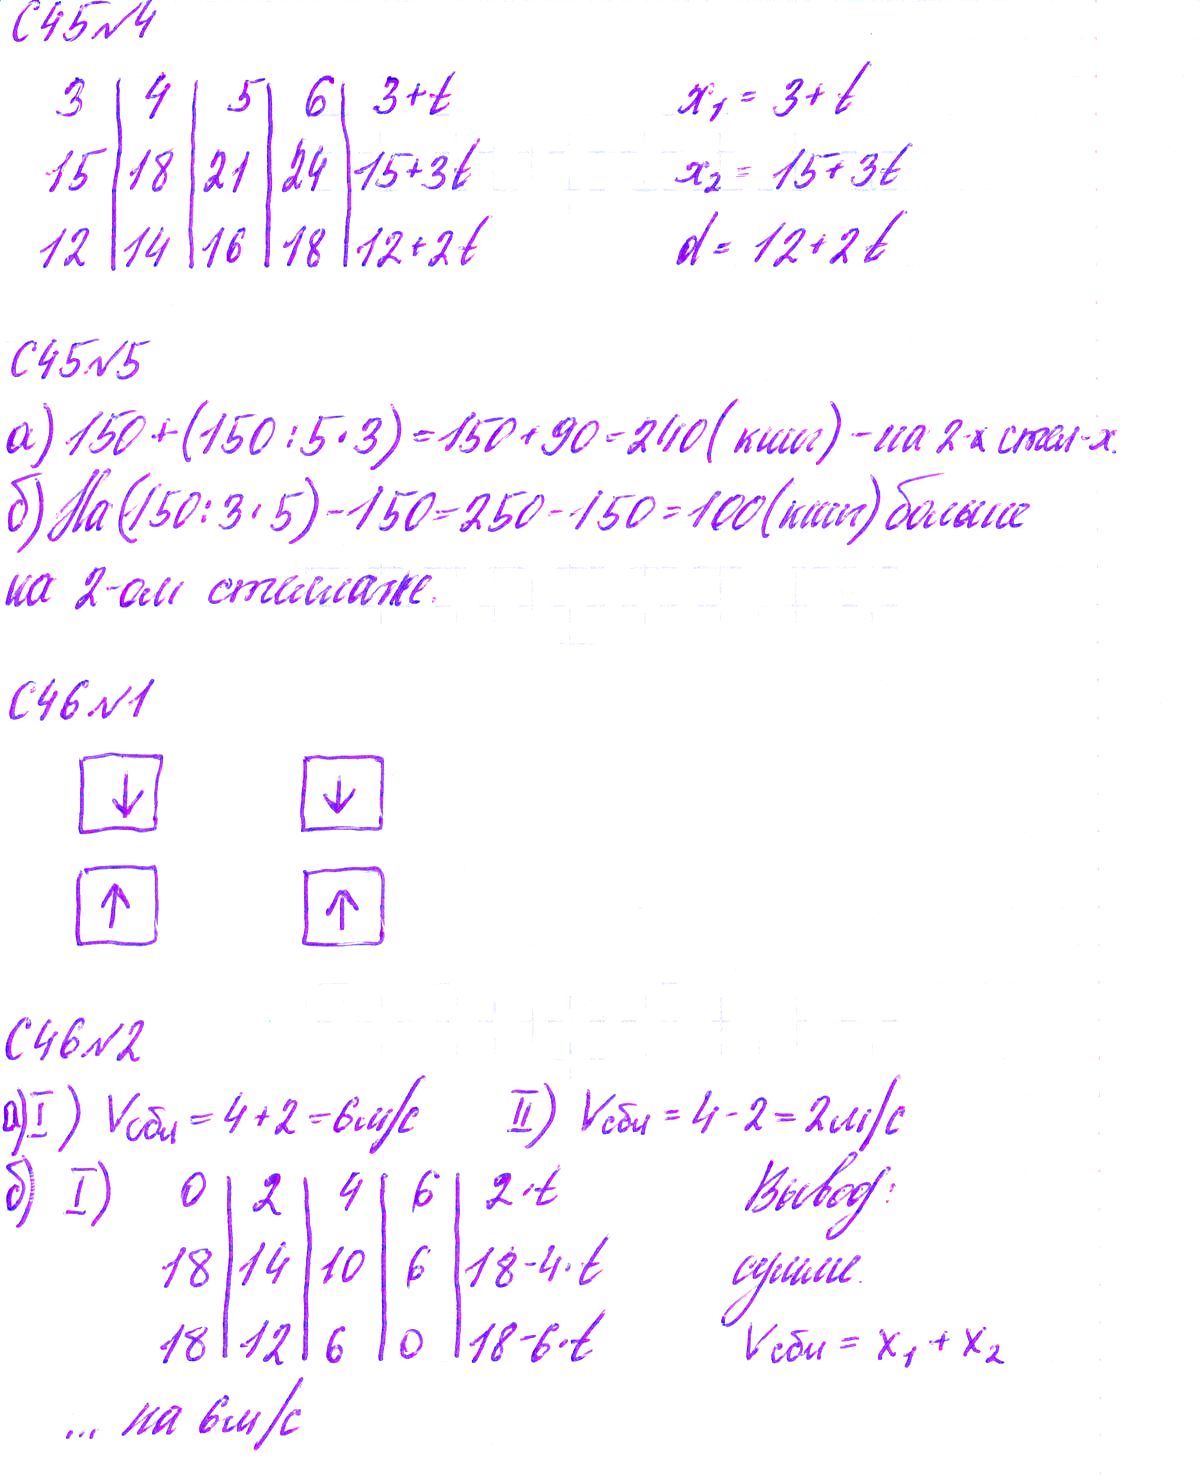 С45№4
3 | 4 | 5 | 6 | 3+t   x₁ = 3+t
15 | 18 | 21 | 24 | 15+3t   x₂ = 15+3t
12 | 14 | 16 | 18 | 12+2t   d = 12+2t
С45№5
а) 150+(150:5·3)=150+90=240(книг)-на 2-х стел-х.
б) На (150:3·5)-150=250-150=100(книг) больше
на 2-ом стеллаже.
С46№1
↓ ↓
↑ ↑
С46№2
а) I) Vсбл = 4+2=6м/с   II) Vсбл = 4-2=2м/с
б) I) 0 | 2 | 4 | 6 | 2·t   Вывод:
18 | 14 | 10 | 6 | 18-4·t   сумме.
18 | 12 | 6 | 0 | 18-6·t   Vсбл = x₁ + x₂
... на 6м/с